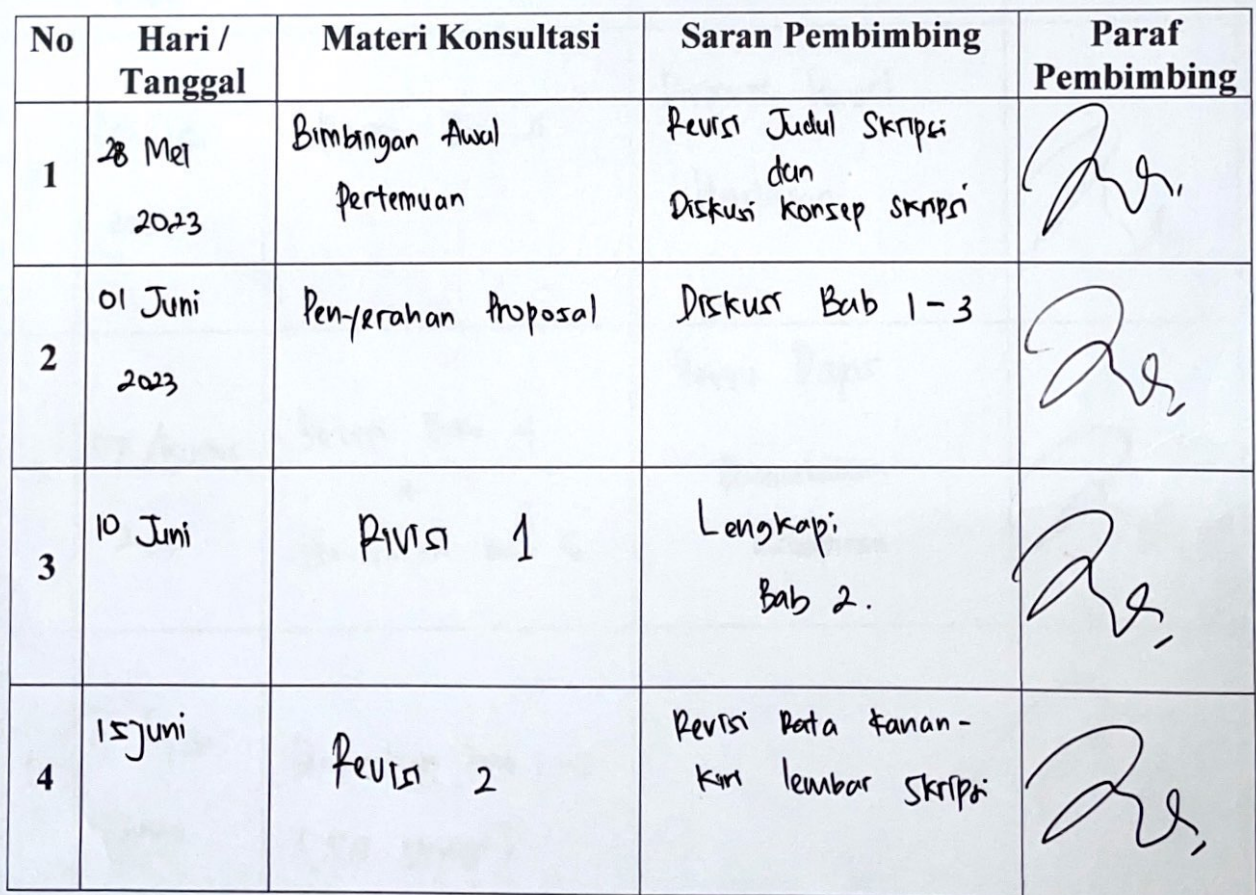 No
Hari /
Tanggal
Materi Konsultasi
Saran Pembimbing
Paraf
Pembimbing
1
28 Mei
2023
Bimbingan Awal
Pertemuan
Revisi Judul Skripsi
dan
Diskusi Konsep Skripsi
2
01 Juni
2023
Penyerahan Proposal
Diskusi Bab 1-3
3
10 Juni
Rivisi 1
Lengkapi
Bab 2.
4
15 Juni
Revisi 2
Revisi Rata Kanan-
Kiri lembar Skripsi